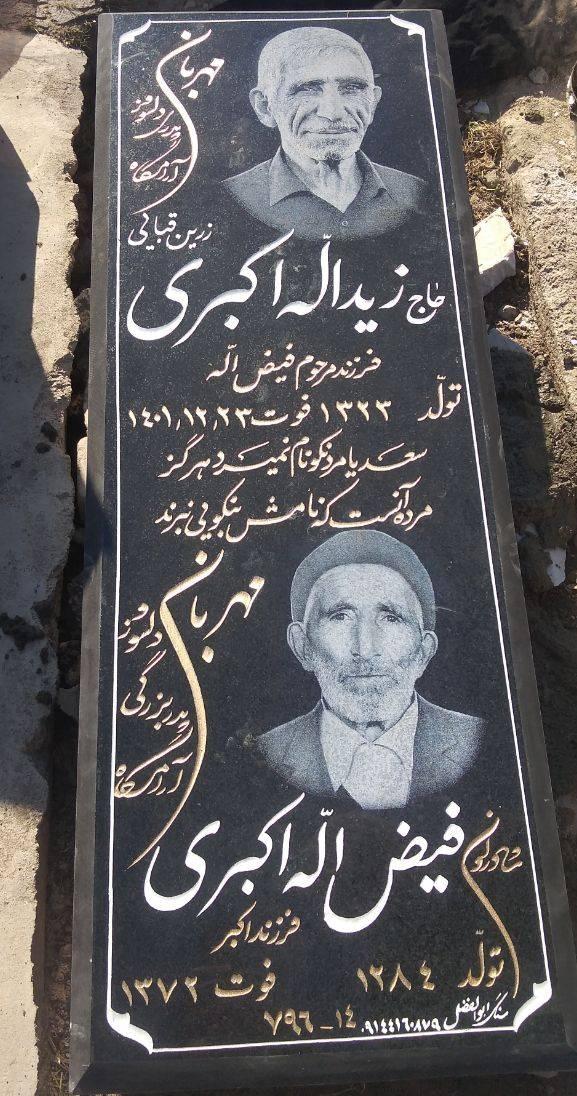 آرامگاه
پدری دلسوز
مهربان
زرین قبائی
حاج زیداله اکبری
فرزند مرحوم فیض اله
تولّد ۱۳۲۳ فوت ۱۴۰۱,۱۲,۲۳
سعدیا مرد نکونام نمیرد هرگز
مرده آنست که نامش بنکویی نبرند
آرامگاه
پدربزرگی
دلسوز
مهربان
شادروان فیض الّه اکبری
فرزند اکبر
تولّد ۱۲۸۴ فوت ۱۳۷۲
سنگ ابوالفضل ۰۹۱۴۴۱۶۰۸۷۹
۱۴ - ۷۹۶